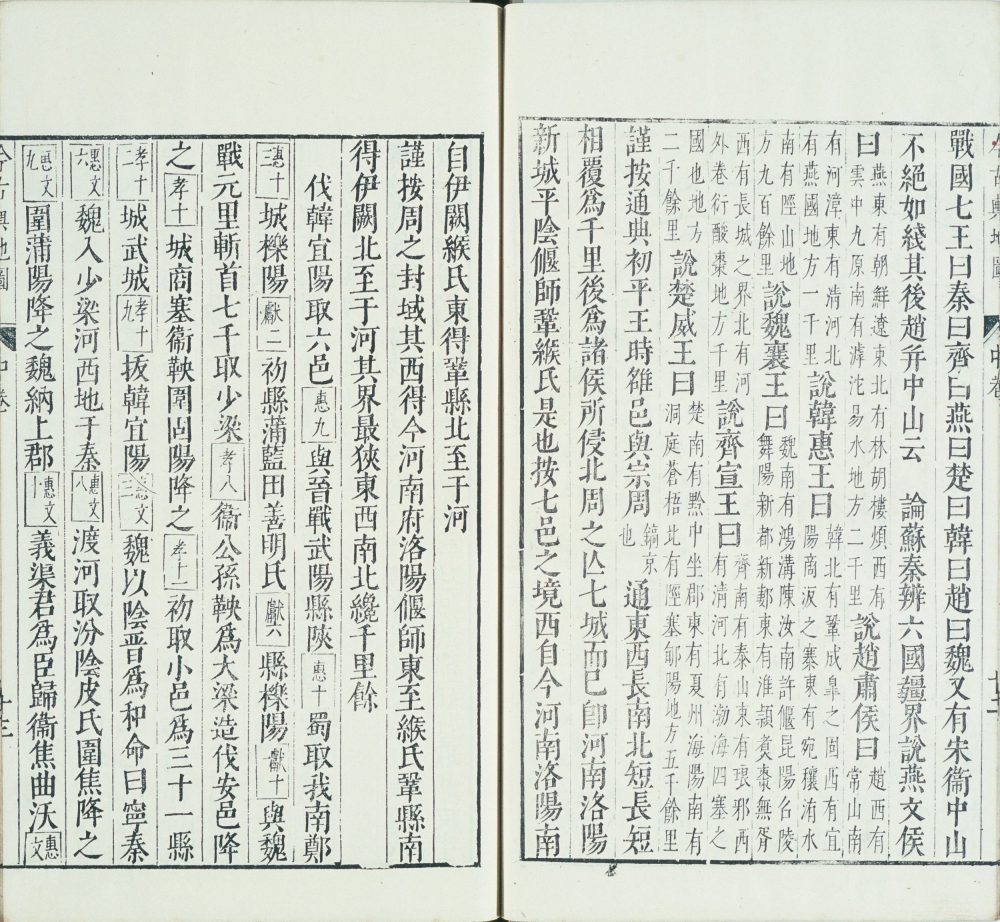 戰國七王曰秦曰齊曰燕曰楚曰韓曰趙曰魏又有宋衞中山
不絕如綫其後趙弁中山云　論蘇秦辨六國疆界說燕文侯
曰燕東有朝鮮遼東北有林胡樓煩西有
雲中九原南有滹沱易水地方二千里說趙肅侯曰趙西有
常山南
有河漳東有清河北
有燕國地方二千里說韓惠王曰韓北有鞏成皐之固西有宜
陽商阪之塞東有宛穰洧水
南有陘山地
方九百餘里說魏襄王曰魏南有鴻溝陳汝南許偃昆陽召陵
舞陽新都新郪東有淮潁煑棗無胥
西有長城之界北有河
外卷衍酸棗地方千里說齊宣王曰齊南有泰山東有琅邪西
有清河北有渤海四塞之
國也地方
二千餘里說楚威王曰楚南有黔中巫郡東有夏州海陽南有
洞庭蒼梧北有陘塞郇陽地方五千餘里
謹按通典初平王時雒邑與宗周鎬京
也通東西長南北短長短
相覆爲千里後爲諸侯所侵北周之亾七城而已卽河南洛陽
新城平陰偃師鞏緱氏是也按七邑之境西自今河南洛陽南
今古輿地圖　中卷
自伊闕緱氏東得鞏縣北至于河
謹按周之封域其西得今河南府洛陽偃師東至緱氏鞏縣南
得伊闕北至于河其界最狹東西南北纔千里餘
伐韓宜陽取六邑惠九與晉戰武陽縣陝惠十蜀取我南鄭
惠十三城櫟陽獻二初縣蒲藍田善明氏獻六縣櫟陽獻十與魏
戰元里斬首七千取少梁孝八衞公孫鞅爲大梁造伐安邑降
之孝十城商塞衞鞅圍固陽降之孝十二初取小邑爲三十一縣
孝十二城武城孝十九拔韓宜陽惠文三魏以陰晉爲和命曰寧秦
惠文六魏入少梁河西地于秦惠文八渡河取汾陰皮氏圍焦降之
惠文九圍蒲陽降之魏納上郡惠文十義渠君爲臣歸衞焦曲沃惠文
今古輿地圖　中卷　十三